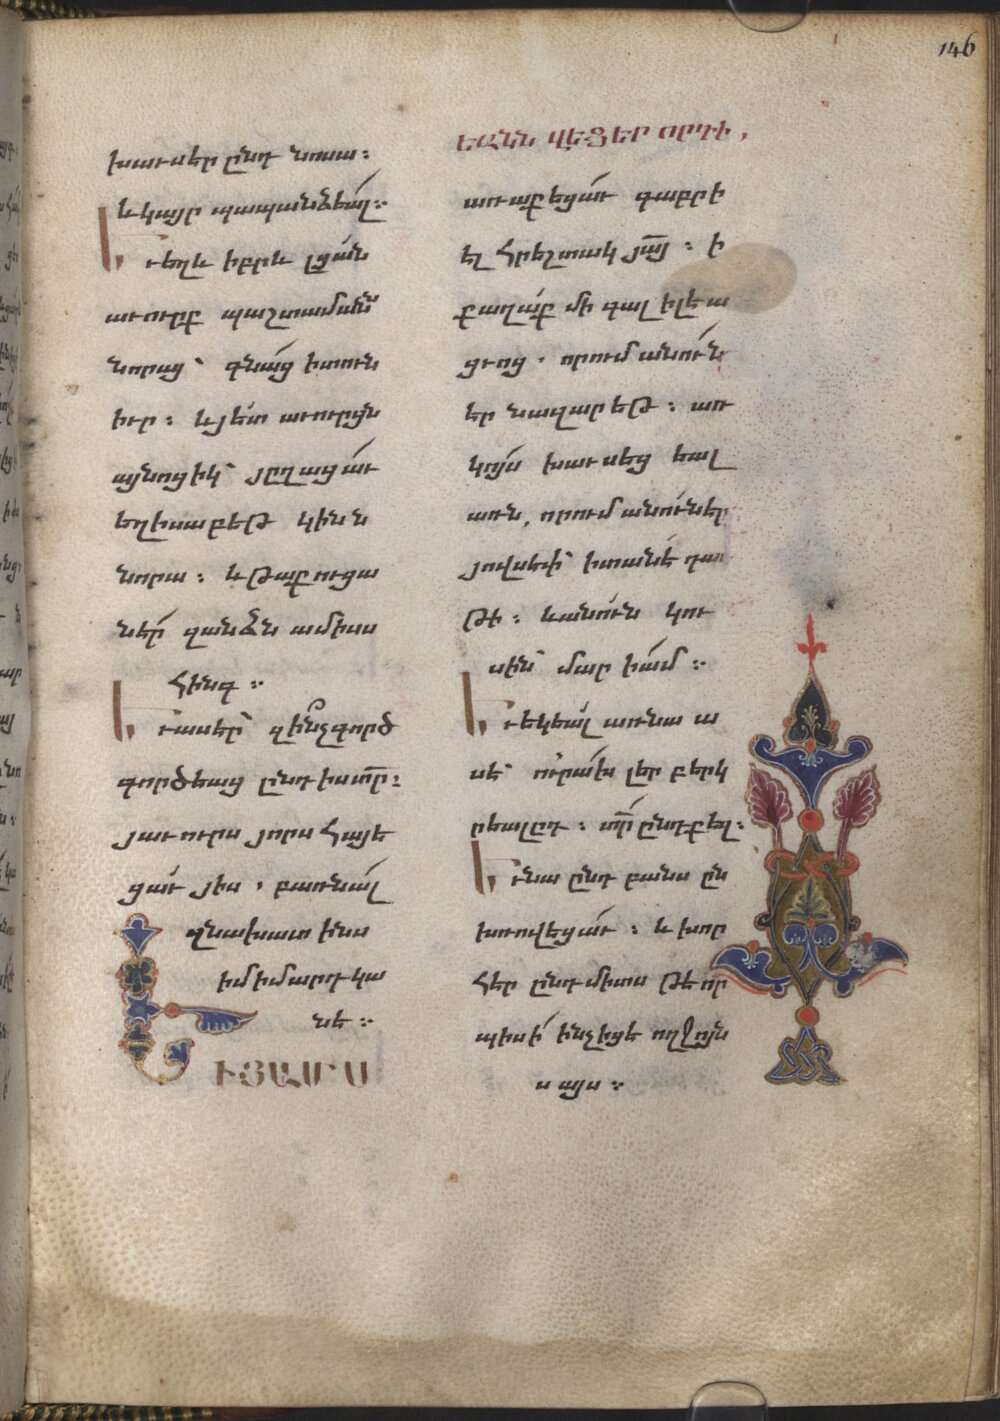 146
խաւսեր ընդ նոսա ։
և կայր պապանձեալ ։
Եւ եղև իբրև լցան
աւուրք պաշտաման
նորայ՝ գնաց ի տուն
իւր ։ և յետ աւուրցն
այնոցիկ՝ յըղացաւ
եղիսաբեթ կինն
նորա ։ և թաքուցա
ներ զանձն ամիսս
հինգ ։
Եւ ասէր՝ զի՞նչ գործ
գործեաց ընդ իս տր ։
յաւուրս յորս հայե
ցաւ յիս , բառնալ
զնախատինս
իմ ի մարդկա
նէ ։
ԵՒ ՅԱՄՍ
ԵԱՆՆ ՎԵՑԵՐՈՐԴԻ ,
առաքեցաւ գաբրի
էլ հրեշտակ յայ ։ ի
քաղաք մի գալիլեա
ցւոց , որում անուն
էր նազարեթ ։ առ
կոյս խաւսեց եալ
առն , որում անուն էր
յովսեփ՝ ի տանէ դաւ
թի ։ և անուն կու
սին՝ մարիամ ։
Եւ եկեալ առ նա ա
սէ՝ ուրախ լեր բերկ
րեալըդ ։ տր ընդ քեզ ։
Եւ նա ընդ բանս ըն
խռովեցաւ ։ և խոր
հէր ընդ միտս թէ որ
պիսի ինչ իցէ ողջոյն
ս այս ։